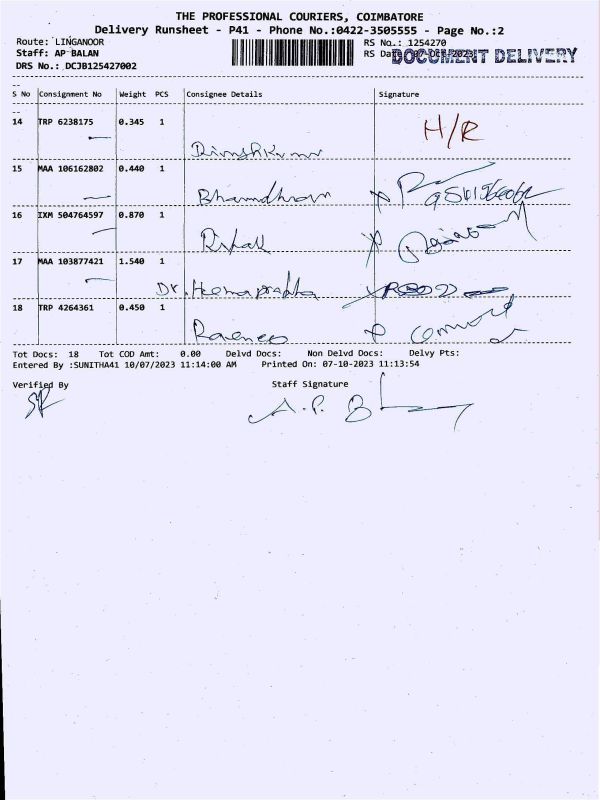 THE PROFESSIONAL COURIERS, COIMBATORE
Delivery Runsheet - P41 - Phone No.:0422-3505555 - Page No.:2
Route: LINGANOOR RS No.: 1254270
Staff: AP BALAN RS Date: 07-Oct-2023 DOCUMENT DELIVERY
DRS No.: DCJB125427002
S No Consignment No Weight PCS Consignee Details Signature
14 TRP 6238175 0.345 1 H/R
15 MAA 106162802 0.440 1
16 IXM 504764597 0.870 1
17 MAA 103877421 1.540 1
Dr. Hemaprabha
18 TRP 4264361 0.450 1
Tot Docs: 18 Tot COD Amt: 0.00 Delvd Docs: Non Delvd Docs: Delvy Pts:
Entered By :SUNITHA41 10/07/2023 11:14:00 AM Printed On: 07-10-2023 11:13:54
Verified By Staff Signature
A.P. B